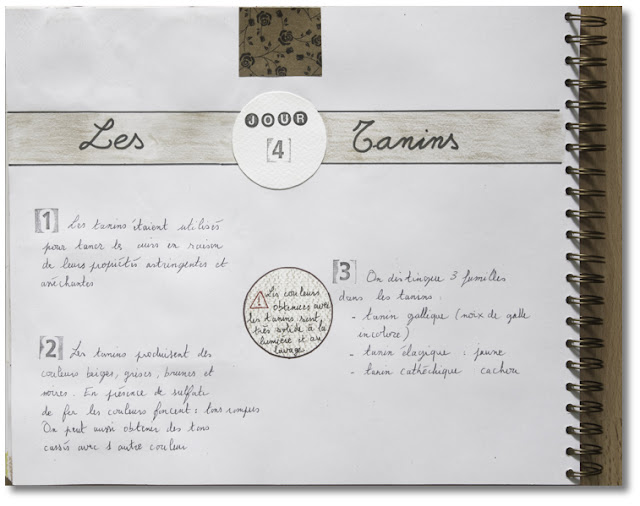 JOUR
[4]
Les Tanins
[1] Les tanins étaient utilisés
pour taner les cuirs en raison
de leurs propiétés astringentes et
asséchantes
[2] Les tanins produisent des
couleurs beiges, grises, brunes et
noires. En présence de sulfate
de fer les couleurs foncent : tons rompus
On peut aussi obtenir des tons
cassés avec 1 autre couleur
Les couleurs
obtenues avec
les tanins sont
très solide à la
lumière et au
lavage
[3] On distingue 3 familles
dans les tanins :
- tanin gallique (noix de galle
incolore)
- tanin élagique : jaune
- tanin cathéchique cachou